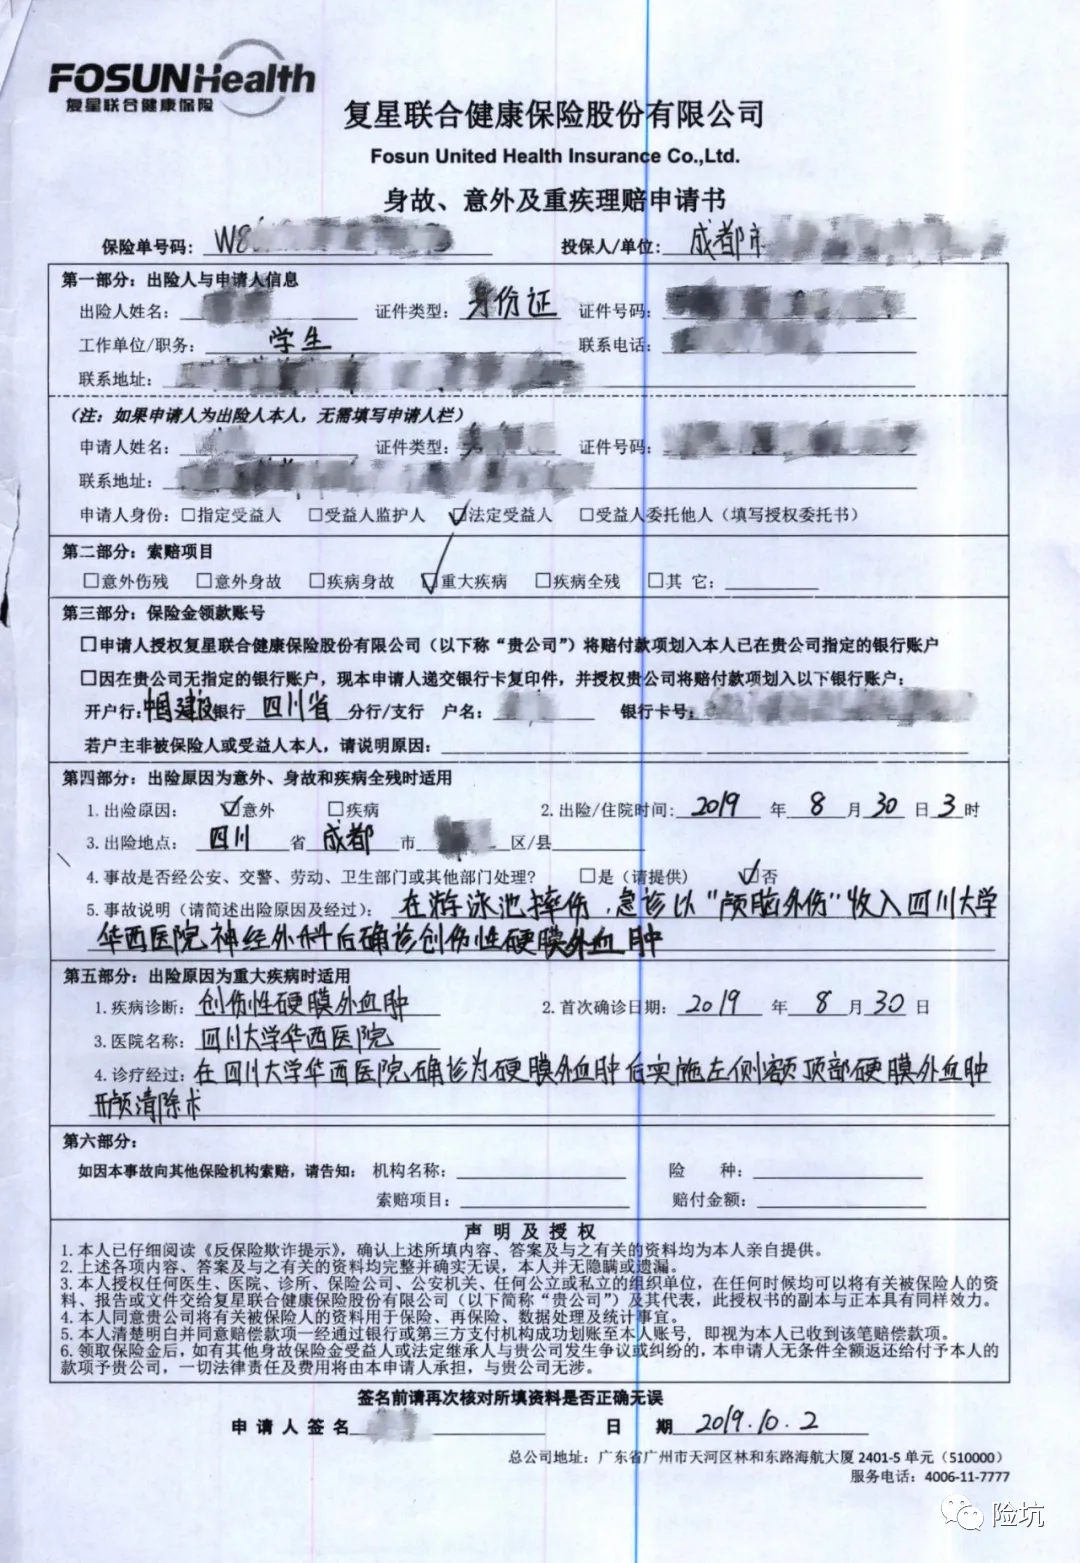 FOSUN Health
复星联合健康保险
复星联合健康保险股份有限公司
Fosun United Health Insurance Co.,Ltd.
身故、意外及重疾理赔申请书
保险单号码: W8 投保人/单位: 成都市
第一部分: 出险人与申请人信息
出险人姓名: 证件类型: 身份证 证件号码:
工作单位/职务: 学生 联系电话:
联系地址:
(注: 如果申请人为出险人本人，无需填写申请人栏)
申请人姓名: 证件类型: 证件号码:
联系地址:
申请人身份: □指定受益人 □受益人监护人 ☑法定受益人 □受益人委托他人（填写授权委托书）
第二部分: 索赔项目
□意外伤残 □意外身故 □疾病身故 ☑重大疾病 □疾病全残 □其 它:
第三部分: 保险金领款账号
□申请人授权复星联合健康保险股份有限公司（以下称“贵公司”）将赔付款项划入本人已在贵公司指定的银行账户
□因在贵公司无指定的银行账户，现本申请人递交银行卡复印件，并授权贵公司将赔付款项划入以下银行账户:
开户行: 中国建设银行 四川省 分行/支行 户名: 银行卡号:
若户主非被保险人或受益人本人，请说明原因:
第四部分: 出险原因为意外、身故和疾病全残时适用
1.出险原因: ☑意外 □疾病 2.出险/住院时间: 2019 年 8 月 30 日 3 时
3.出险地点: 四川 省 成都 市 区/县
4.事故是否经公安、交警、劳动、卫生部门或其他部门处理? □是（请提供） ☑否
5.事故说明（请简述出险原因及经过）: 在游泳池摔伤，急诊以“颅脑外伤”收入四川大学
华西医院神经外科后确诊创伤性硬膜外血肿
第五部分: 出险原因为重大疾病时适用
1.疾病诊断: 创伤性硬膜外血肿 2.首次确诊日期: 2019 年 8 月 30 日
3.医院名称: 四川大学华西医院
4.诊疗经过: 在四川大学华西医院确诊为硬膜外血肿后实施左侧额顶部硬膜外血肿
开颅清除术
第六部分:
如因本事故向其他保险机构索赔，请告知: 机构名称: 险 种:
索赔项目: 赔付金额:
声 明 及 授 权
1. 本人已仔细阅读《反保险欺诈提示》，确认上述所填内容、答案及与之有关的资料均为本人亲自提供。
2. 上述各项内容、答案及与之有关的资料均完整并确实无误，本人并无隐瞒或遗漏。
3. 本人授权任何医生、医院、诊所、保险公司、公安机关、任何公立或私立的组织单位，在任何时候均可以将有关被保险人的资
料、报告或文件交给复星联合健康保险股份有限公司（以下简称“贵公司”）及其代表，此授权书的副本与正本具有同样效力。
4. 本人同意贵公司将有关被保险人的资料用于保险、再保险、数据处理及统计事宜。
5. 本人清楚明白并同意赔偿款项一经通过银行或第三方支付机构成功划账至本人账号，即视为本人已收到该笔赔偿款项。
6. 领取保险金后，如有其他身故保险金受益人或法定继承人与贵公司发生争议或纠纷的，本申请人无条件全额返还给付予本人的
款项予贵公司，一切法律责任及费用将由本申请人承担，与贵公司无涉。
签名前请再次核对所填资料是否正确无误
申 请 人 签 名 日 期 2019.10.2
总公司地址: 广东省广州市天河区林和东路海航大厦 2401-5 单元（510000）
服务电话: 4006-11-7777
险坑